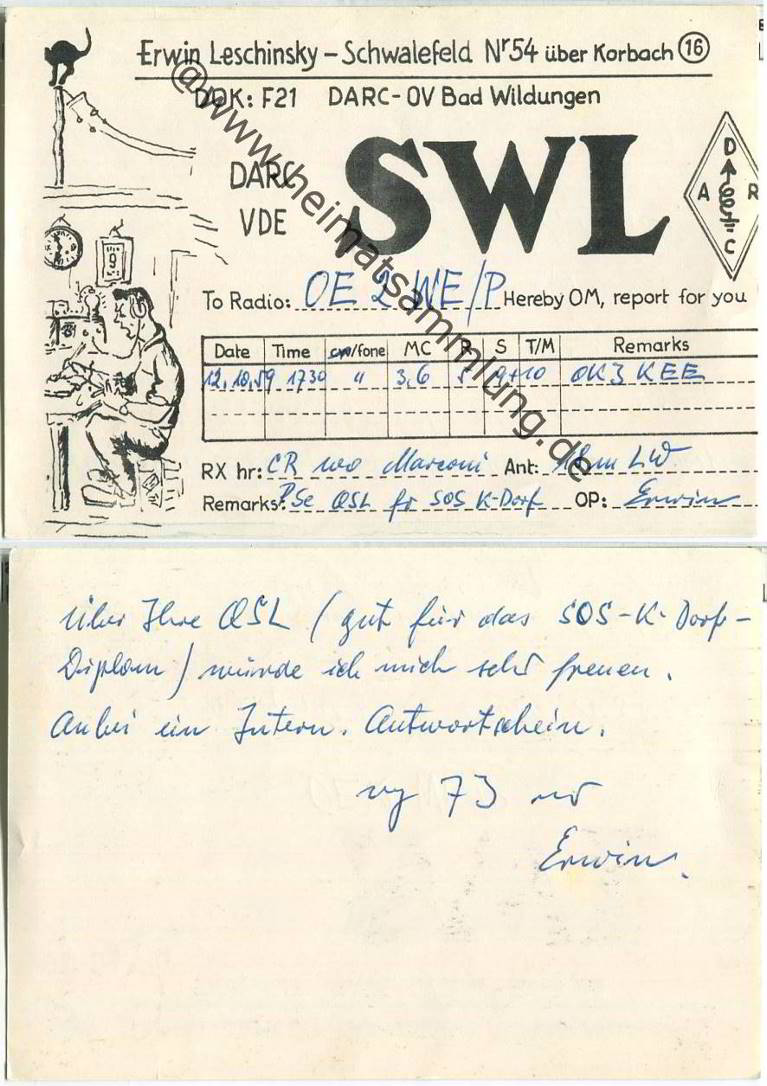 Erwin Leschinsky – Schwalefeld Nr 54 über Korbach 16
DOK: F21 DARC-OV Bad Wildungen
DARC
VDE
SWL
D
A R
C
9
To Radio: OE 2 WE/P Hereby OM, report for you
Date Time cw/fone MC R S T/M Remarks
12.10.59 1730 " 3,6 5 9+10 OK3KEE
RX hr: CR Marconi Ant: LW.
Remarks: Pse QSL fr SOS K-Dorf OP: Erwin
@www.heimatsammlung.de
über Ihre QSL (gut für das SOS-K-Dorf-
Diplom) würde ich mich sehr freuen.
Anbei ein Intern. Antwortschein.
vy 73
Erwin.